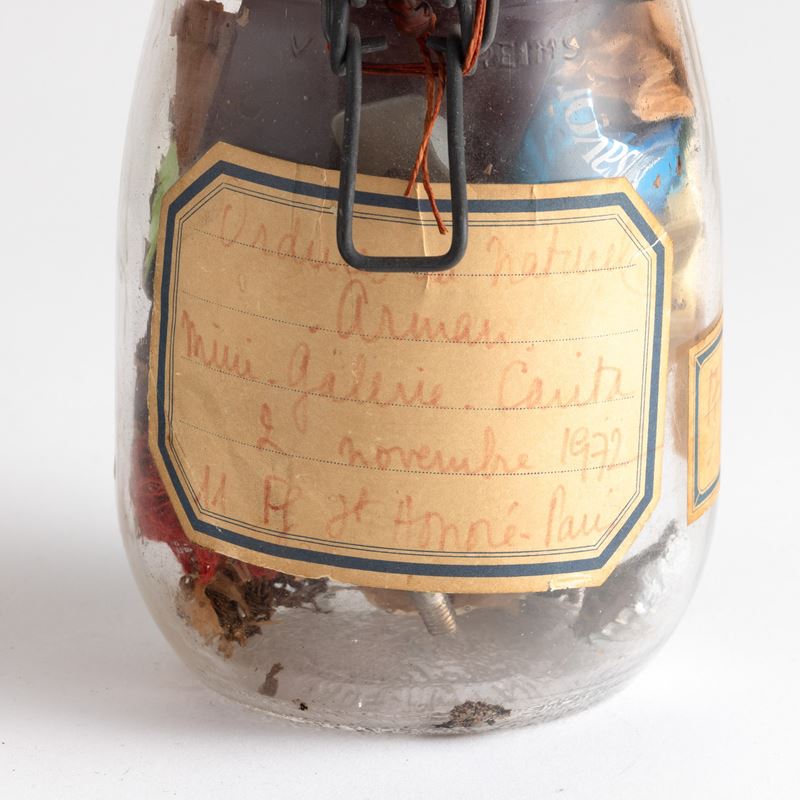 REIMS
Ordure au naturel
Arman
mini-galerie-Carita
2 novembre 1972
11 Fg St Honoré-Paris